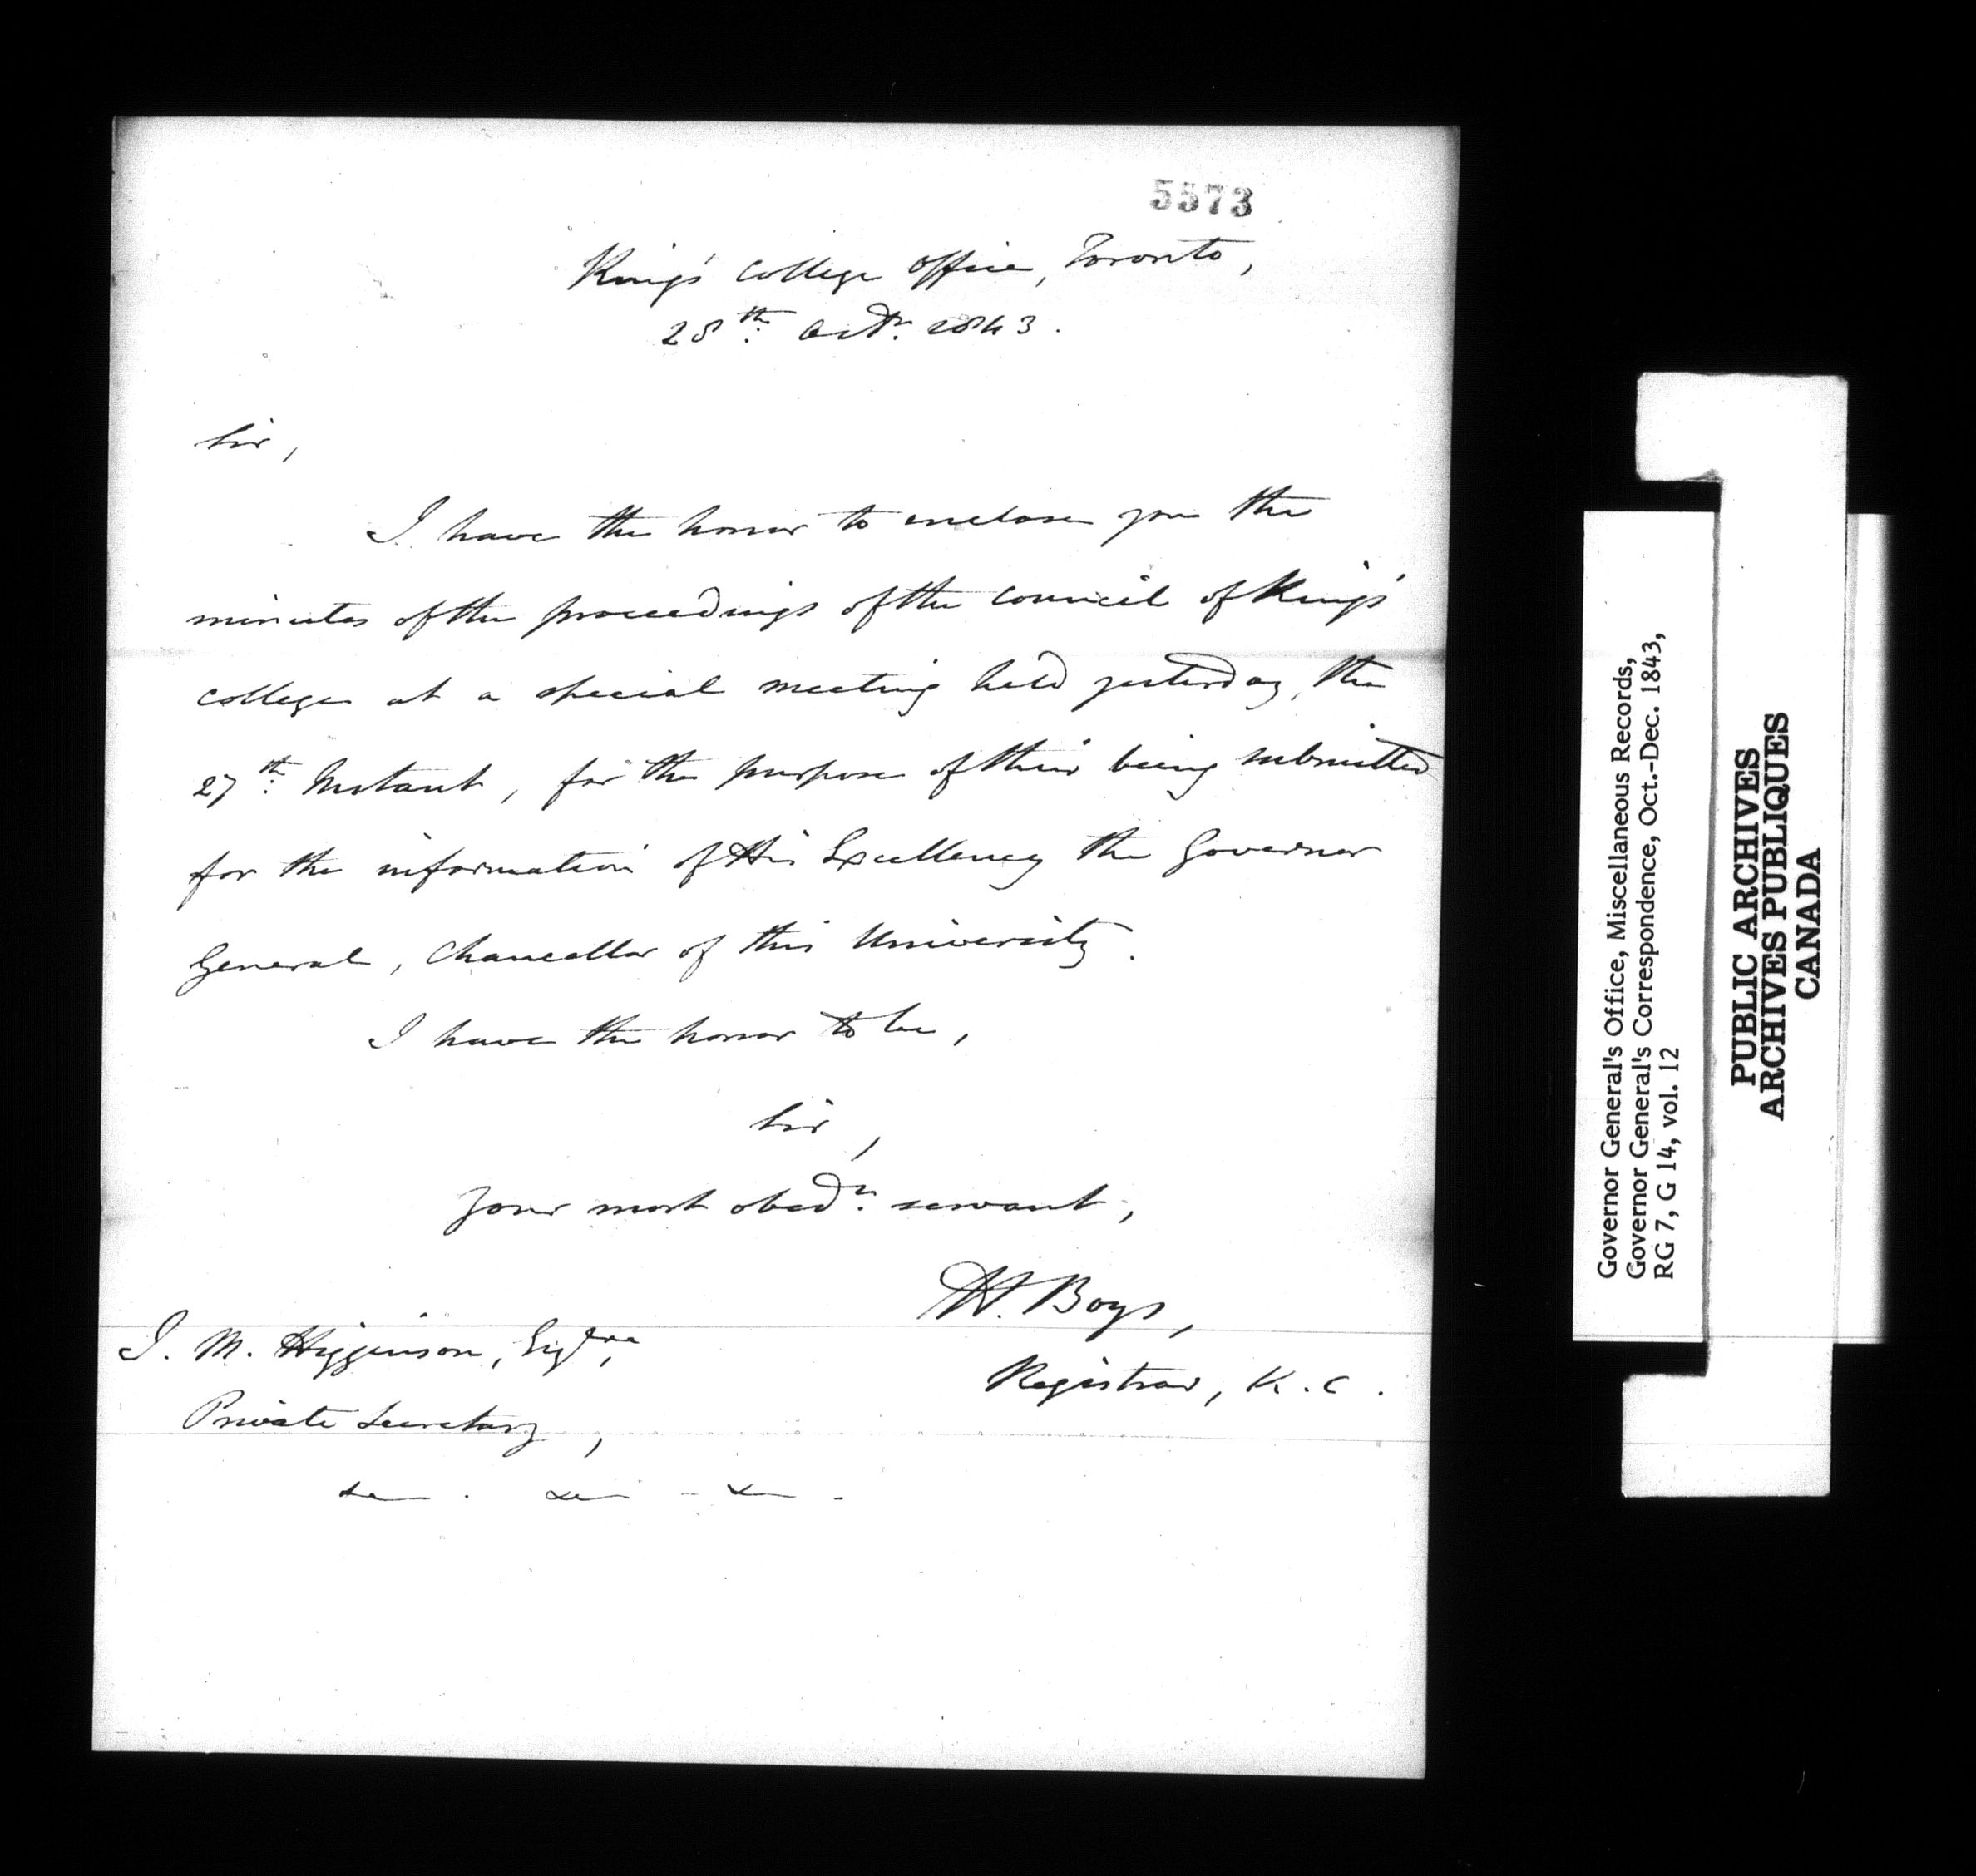 5573
King's College Office, Toronto,
28th. Octr. 1843.
Sir,
I have the honor to enclose you the
minutes of the proceedings of the Council of King's
College at a special meeting held yesterday, the
27th. Instant, for the purpose of their being submitted
for the information of His Excellency the Governor
General, Chancellor of this University.
I have the honor to be,
Sir,
Your most obedt. servant,
H. Boys,
Registrar, K. C.
J. M. Higginson, Esqre,
Private Secretary,
Governor General's Office, Miscellaneous Records,
Governor General's Correspondence, Oct.-Dec. 1843,
RG 7, G 14, vol. 12
PUBLIC ARCHIVES
ARCHIVES PUBLIQUES
CANADA